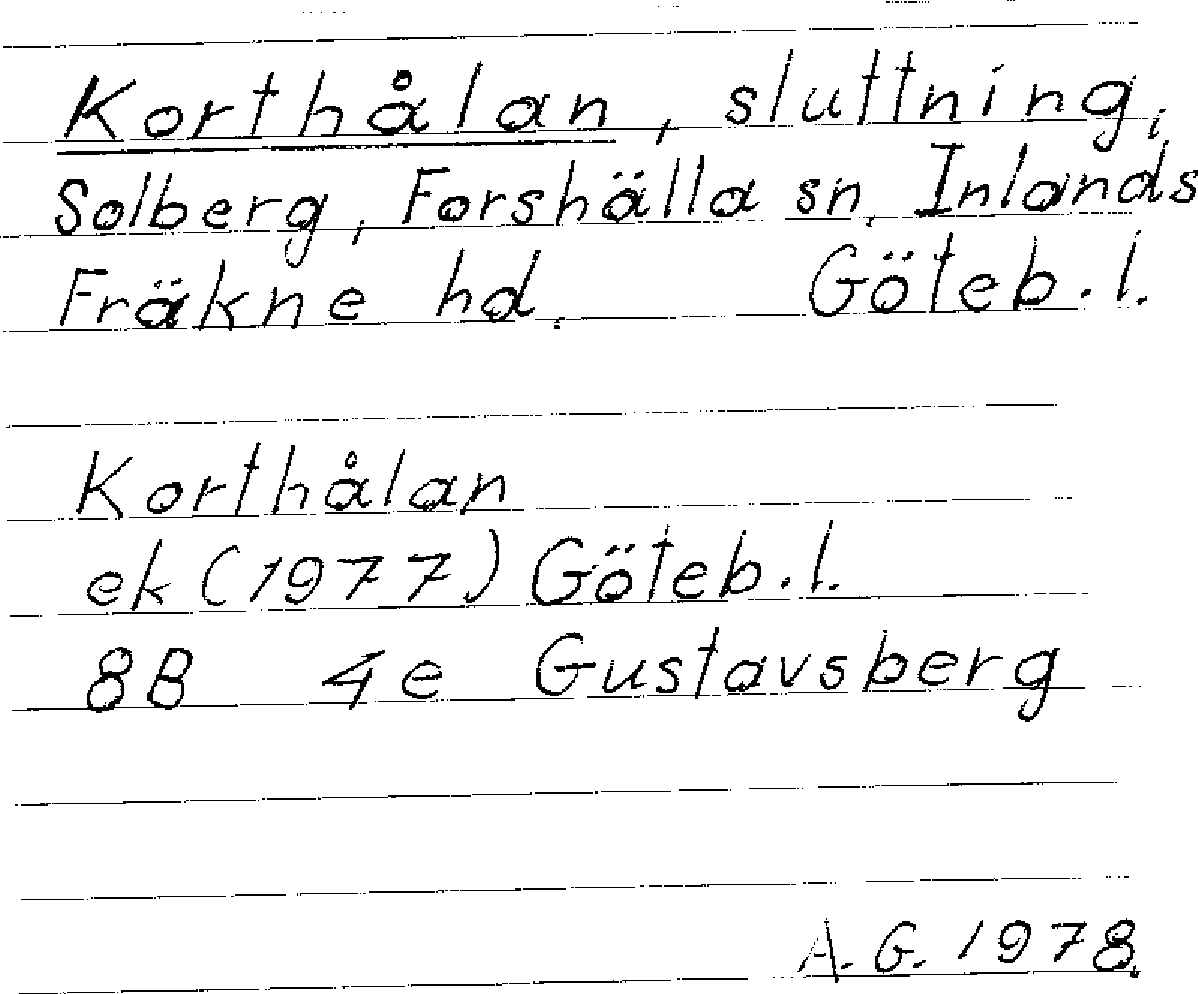 Korthålan, sluttning,
Solberg, Forshälla sn, Inlands
Fräkne hd. Göteb. l.
Korthålan
ek (1977) Göteb. l.
8B 4e Gustavsberg
A. G. 1978.